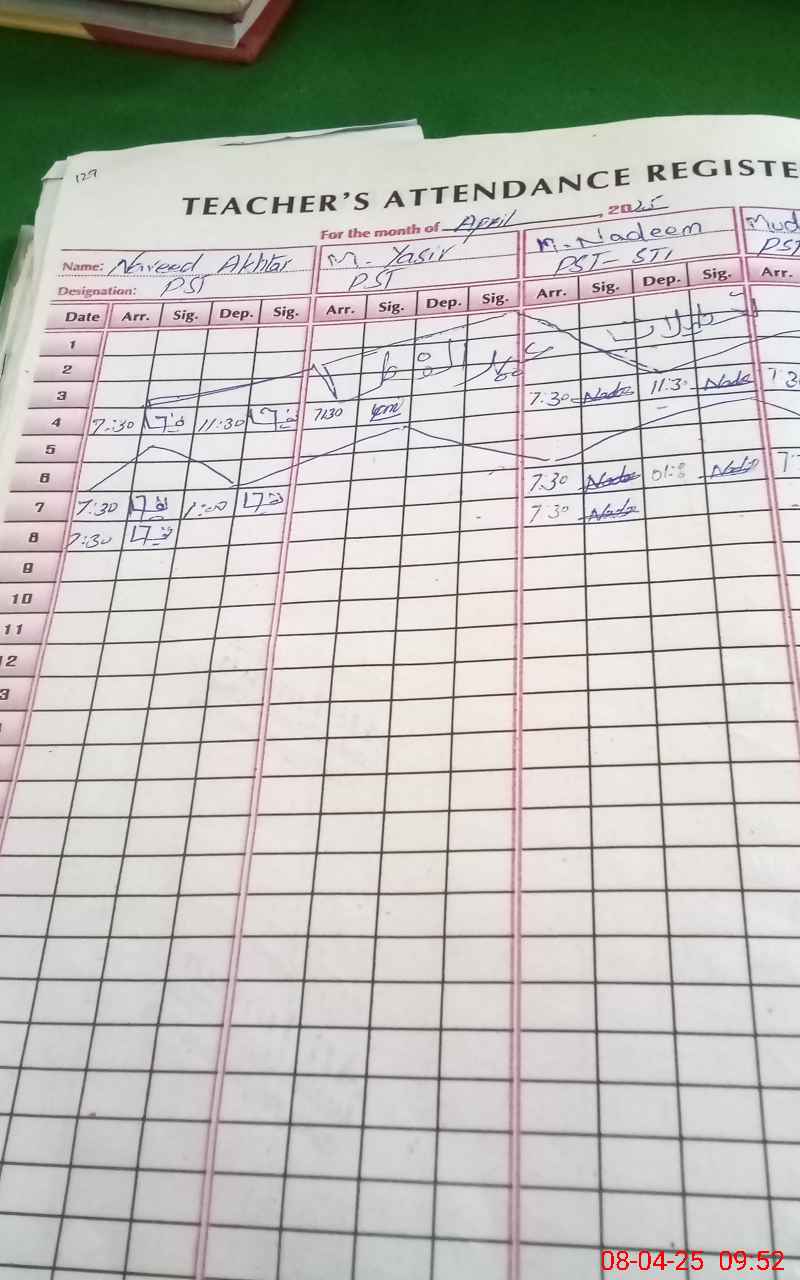 129
TEACHER'S ATTENDANCE REGISTE
For the month of April, 2025
Name: Naveed Akhtar M. Yasir M. Nadeem Mud
Designation: PST PST PST- STI PST
Date Arr. Sig. Dep. Sig. Arr. Sig. Dep. Sig. Arr. Sig. Dep. Sig. Arr.
1
2
3
4 7:30 11:30 7:30 7:30 Nade 11:30 Nade 7:3
5
6
7 7:30 1:00 7:30 Nade 01:0 Nade 7:
8 7:30 7:30 Nade
9
10
11
12
3
08-04-25 09:52